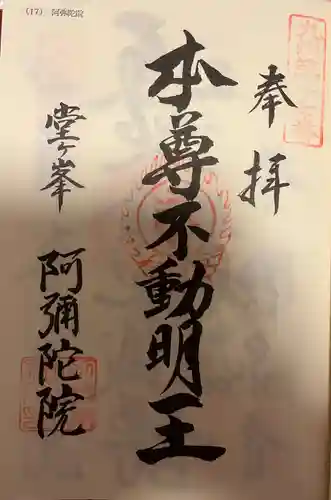 (17) 阿弥陀院
奉拝
本尊不動明王
堂ヶ峯
阿彌陀院